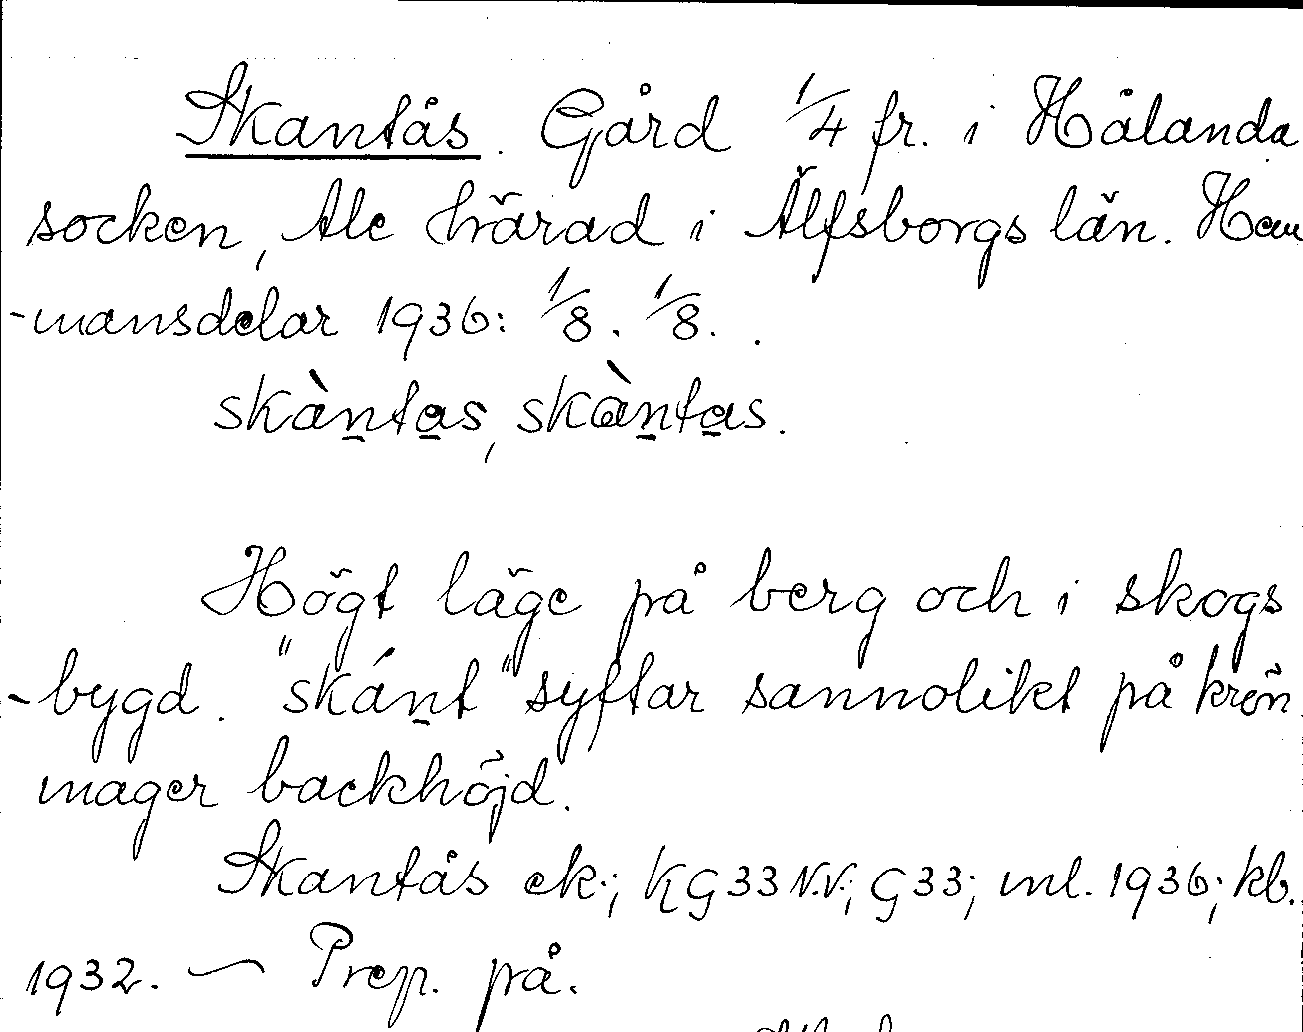 Skantås. Gård 1/4 fr. i Hålanda
socken, Ale härad i Älfsborgs län. Hem
-mansdelar 1936: 1/8. 1/8.
skàn̲ta̲s, skàn̲ta̲s.
Högt läge på berg och i skogs
-bygd. "skán̲t" syftar sannolikt på krön
mager backhöjd.
Skantås ek.; KG33 N.V.; G33; ml. 1936; kb.
1932. — Prep. på.